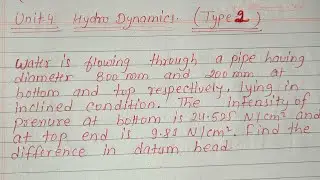 Unit:4 Hydro Dynamics. (Type 2)
Water is flowing through a pipe having
diameter 300 mm and 200 mm at
bottom and top respectively, lying in
inclined condition. The intensity of
Pressure at bottom is 24.525 N/cm² and
at top end is 9.81 N/cm². Find the
difference in datum head.